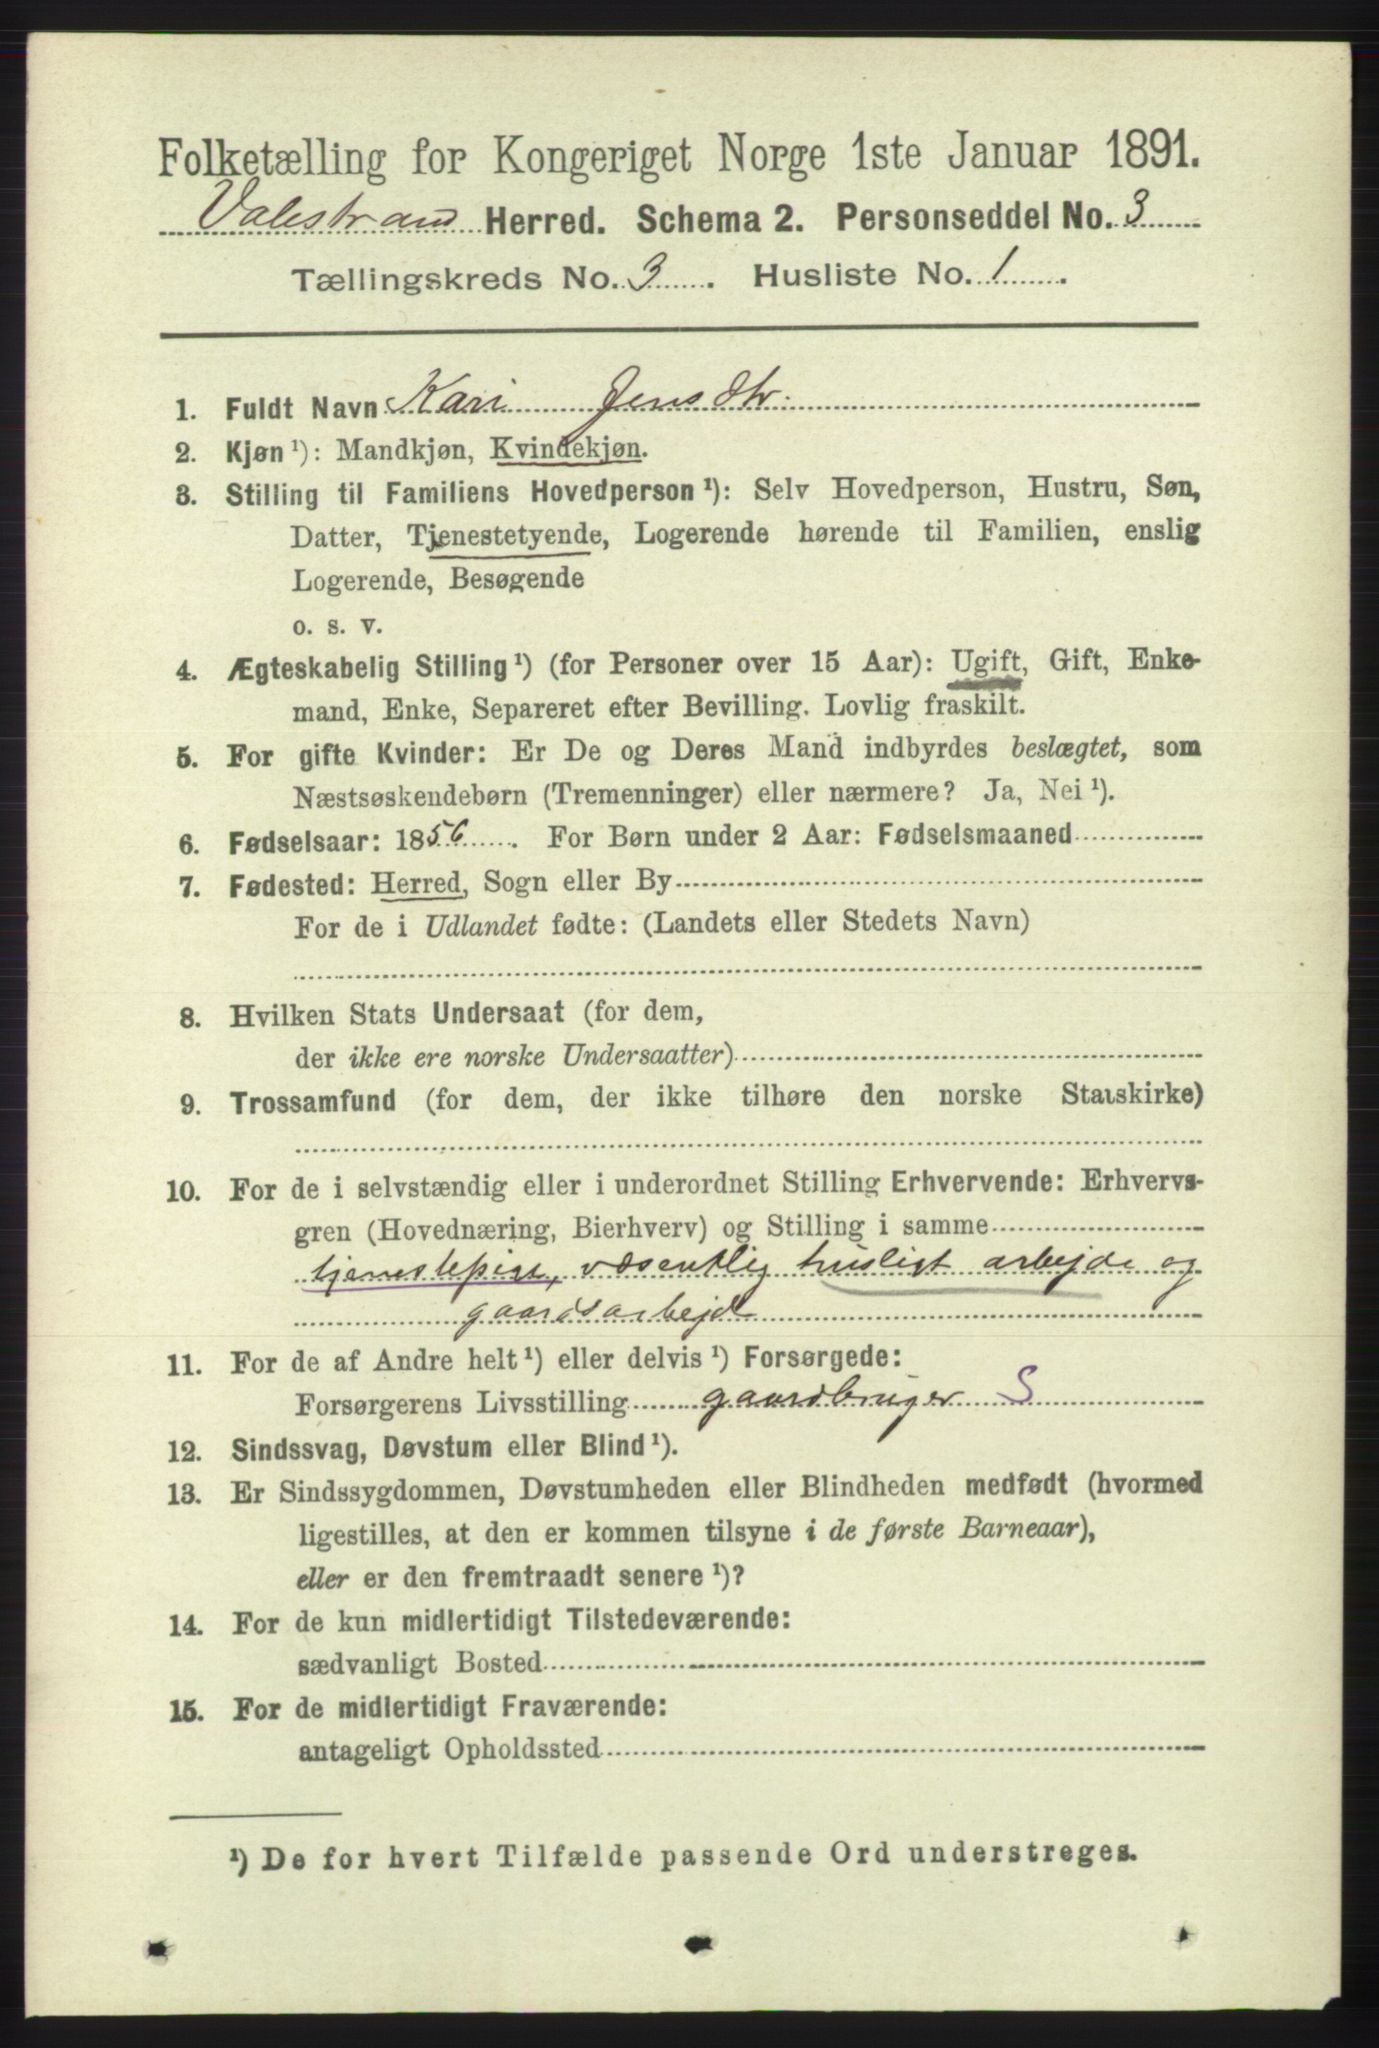 Folketælling for Kongeriget Norge 1ste Januar 1891.
Valestrand Herred. Schema 2. Personseddel No. 3
Tællingskreds No. 3. Husliste No. 1.
1. Fuldt Navn Kari Jensdtr.
2. Kjøn ¹): Mandkjøn, Kvindekjøn.
3. Stilling til Familiens Hovedperson ¹): Selv Hovedperson, Hustru, Søn,
Datter, Tjenestetyende, Logerende hørende til Familien, enslig
Logerende, Besøgende
o. s. v.
4. Ægteskabelig Stilling ¹) (for Personer over 15 Aar): Ugift, Gift, Enke-
mand, Enke, Separeret efter Bevilling. Lovlig fraskilt.
5. For gifte Kvinder: Er De og Deres Mand indbyrdes beslægtet, som
Næstsøskendebørn (Tremenninger) eller nærmere? Ja, Nei ¹).
6. Fødselsaar: 1856. For Børn under 2 Aar: Fødselsmaaned
7. Fødested: Herred, Sogn eller By
For de i Udlandet fødte: (Landets eller Stedets Navn)
8. Hvilken Stats Undersaat (for dem,
der ikke ere norske Undersaatter)
9. Trossamfund (for dem, der ikke tilhøre den norske Statskirke)
10. For de i selvstændig eller i underordnet Stilling Erhvervende: Erhvervs-
gren (Hovednæring, Bierhverv) og Stilling i samme
tjenestepige, væsentlig husligt arbejde og
gaardsarbejde
11. For de af Andre helt ¹) eller delvis ¹) Forsørgede:
Forsørgerens Livsstilling gaardbruger S
12. Sindssvag, Døvstum eller Blind ¹).
13. Er Sindssygdommen, Døvstumheden eller Blindheden medfødt (hvormed
ligestilles, at den er kommen tilsyne i de første Barneaar),
eller er den fremtraadt senere ¹)?
14. For de kun midlertidigt Tilstedeværende:
sædvanligt Bosted
15. For de midlertidigt Fraværende:
antageligt Opholdssted
¹) De for hvert Tilfælde passende Ord understreges.